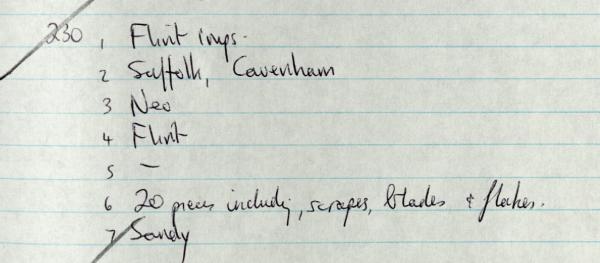 230 1 Flint imps.
2 Suffolk, Cavenham
3 Neo
4 Flint
5 —
6 20 pieces including, scrapes, blades & flakes.
7 Sandy